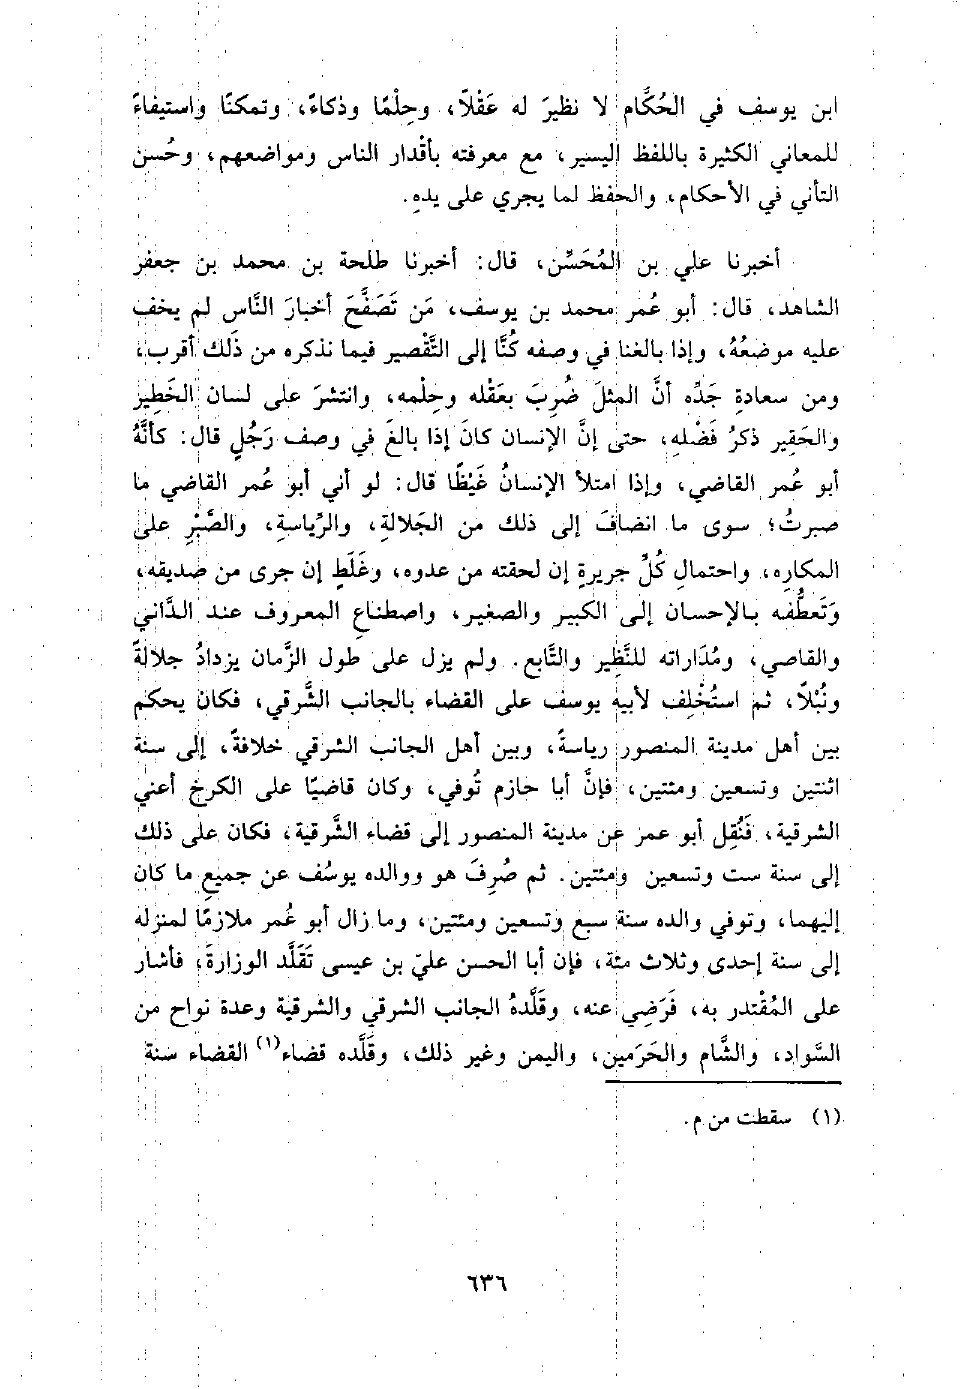 ابن يوسف في الحُكَّام لا نظيرَ له عَقْلاً، وحِلْمًا وذكاءً، وتمكنًا واستيفاءً
للمعاني الكثيرة باللفظ اليسير، مع معرفته بأقْدار الناس ومواضعهم، وحُسن
التأني في الأحكام، والحفظ لما يجري على يدهِ.
أخبرنا علي بن المُحَسِّن، قال: أخبرنا طلحة بن محمد بن جعفر
الشاهد، قال: أبو عُمر محمد بن يوسف، مَن تَصَفَّحَ أخبارَ النَّاس لم يخف
عليه موضعُهُ، وإذا بالغنا في وصفه كُنَّا إلى التَّقْصير فيما نذكره من ذَلك أقرب،
ومن سعادةِ جَدِّه أنَّ المثلَ ضُرِبَ بعَقْله وحِلْمه، وانتشرَ على لسان الخَطِير
والحَقِير ذكرُ فَضْلهِ، حتى إنَّ الإنسان كانَ إذا بالغَ في وصف رَجُلٍ قال: كأنَّهُ
أبو عُمر القاضي، وإذا امتلأ الإنسانُ غَيْظًا قال: لو أني أبو عُمر القاضي ما
صبرتُ؛ سوى ما انضافَ إلى ذلك من الجَلالةِ، والرِّياسةِ، والصَّبْرِ على
المكارِه، واحتمالِ كُلِّ جريرةٍ إن لحقته من عدوه، وغَلَطٍ إن جرى من صديقه،
وَتَعطُّفه بالإحسان إلى الكبير والصغير، واصطناعِ المعروف عند الدَّاني
والقاصي، ومُدَاراته للنَّظِير والتَّابع. ولم يزل على طول الزَّمان يزدادُ جلالةً
ونُبْلاً، ثم استُخْلِف لأبيه يوسف على القضاء بالجانب الشَّرقي، فكان يحكم
بين أهل مدينة المنصور رياسةً، وبين أهل الجانب الشرقي خلافةً، إلى سنة
اثنتين وتسعين ومئتين، فإنَّ أبا حازم تُوفي، وكان قاضيًا على الكرخ أعني
الشرقية، فَنُقِل أبو عمر عن مدينة المنصور إلى قضاء الشَّرقية، فكان على ذلك
إلى سنة ست وتسعين ومئتين. ثم صُرِفَ هو ووالده يوسُف عن جميعِ ما كان
إليهما، وتوفي والده سنة سبع وتسعين ومئتين، وما زال أبو عُمر ملازمًا لمنزله
إلى سنة إحدى وثلاث مئة، فإن أبا الحسن عليّ بن عيسى تَقَلَّد الوزارةَ؛ فأشار
على المُقْتدر به، فَرَضِي عنه، وقَلَّدهُ الجانب الشرقي والشرقية وعدة نواحٍ من
السَّواد، والشَّام والحَرَمين، واليمن وغير ذلك، وقَلَّده قضاء<sup>(١)</sup> القضاء سنة
(١) سقطت من م.
٦٣٦